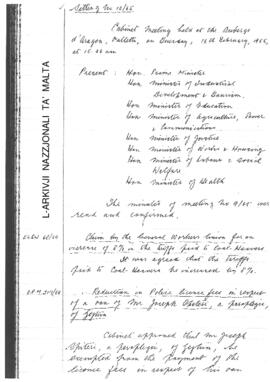 Meeting No 10/65
Cabinet Meeting held at the Auberge
d'Aragon, Valletta, on Tuesday, 16th February, 1965,
at
Present : Hon. Prime Minister
Hon Minister of Industrial
Development & Tourism.
Hon Minister of Education
Hon Minister of Agriculture, Power
& Communications.
Hon Minister of Justice
Hon Minister of Works & Housing
Hon Minister of Labour & Social
Welfare
Hon Minister of Health
L-ARKIVJI NAZZJONALI TA' MALTA
The minutes of meeting No 9/65 were
read and confirmed.
Claim by the General Workers Union for an
increase of 5% in the tariffs paid to Coal Heavers
It was agreed that the tariffs
paid to Coal Heavers be increased by 5%.
Reduction in Police licence fees in respect
of a van of Mr Joseph Spiteri, a paraplegic, of
Zejtun
Cabinet approved that Mr Joseph
Spiteri, a paraplegic, of Zejtun, be
exempted from the payment of the
licence fees in respect of his van